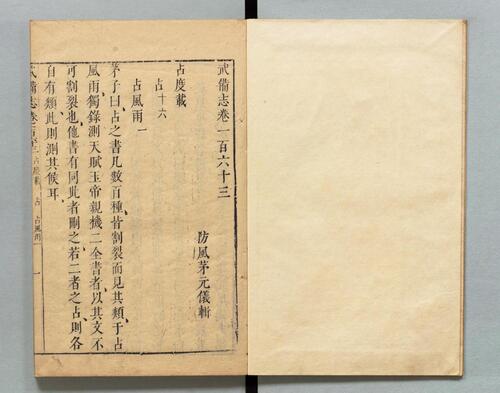 武備志卷一百六十三
防風茅元儀輯
占度載
占十六
占風雨一
茅子曰占之書凡數百種皆割裂而見其類于占
風雨獨錄測天賦玉帝親機二全書者以其文不
可割裂也他書有同此者刪之若二者之占則各
自有類此則測其候耳
武備志卷百六十三 占度載 占 占風雨 一